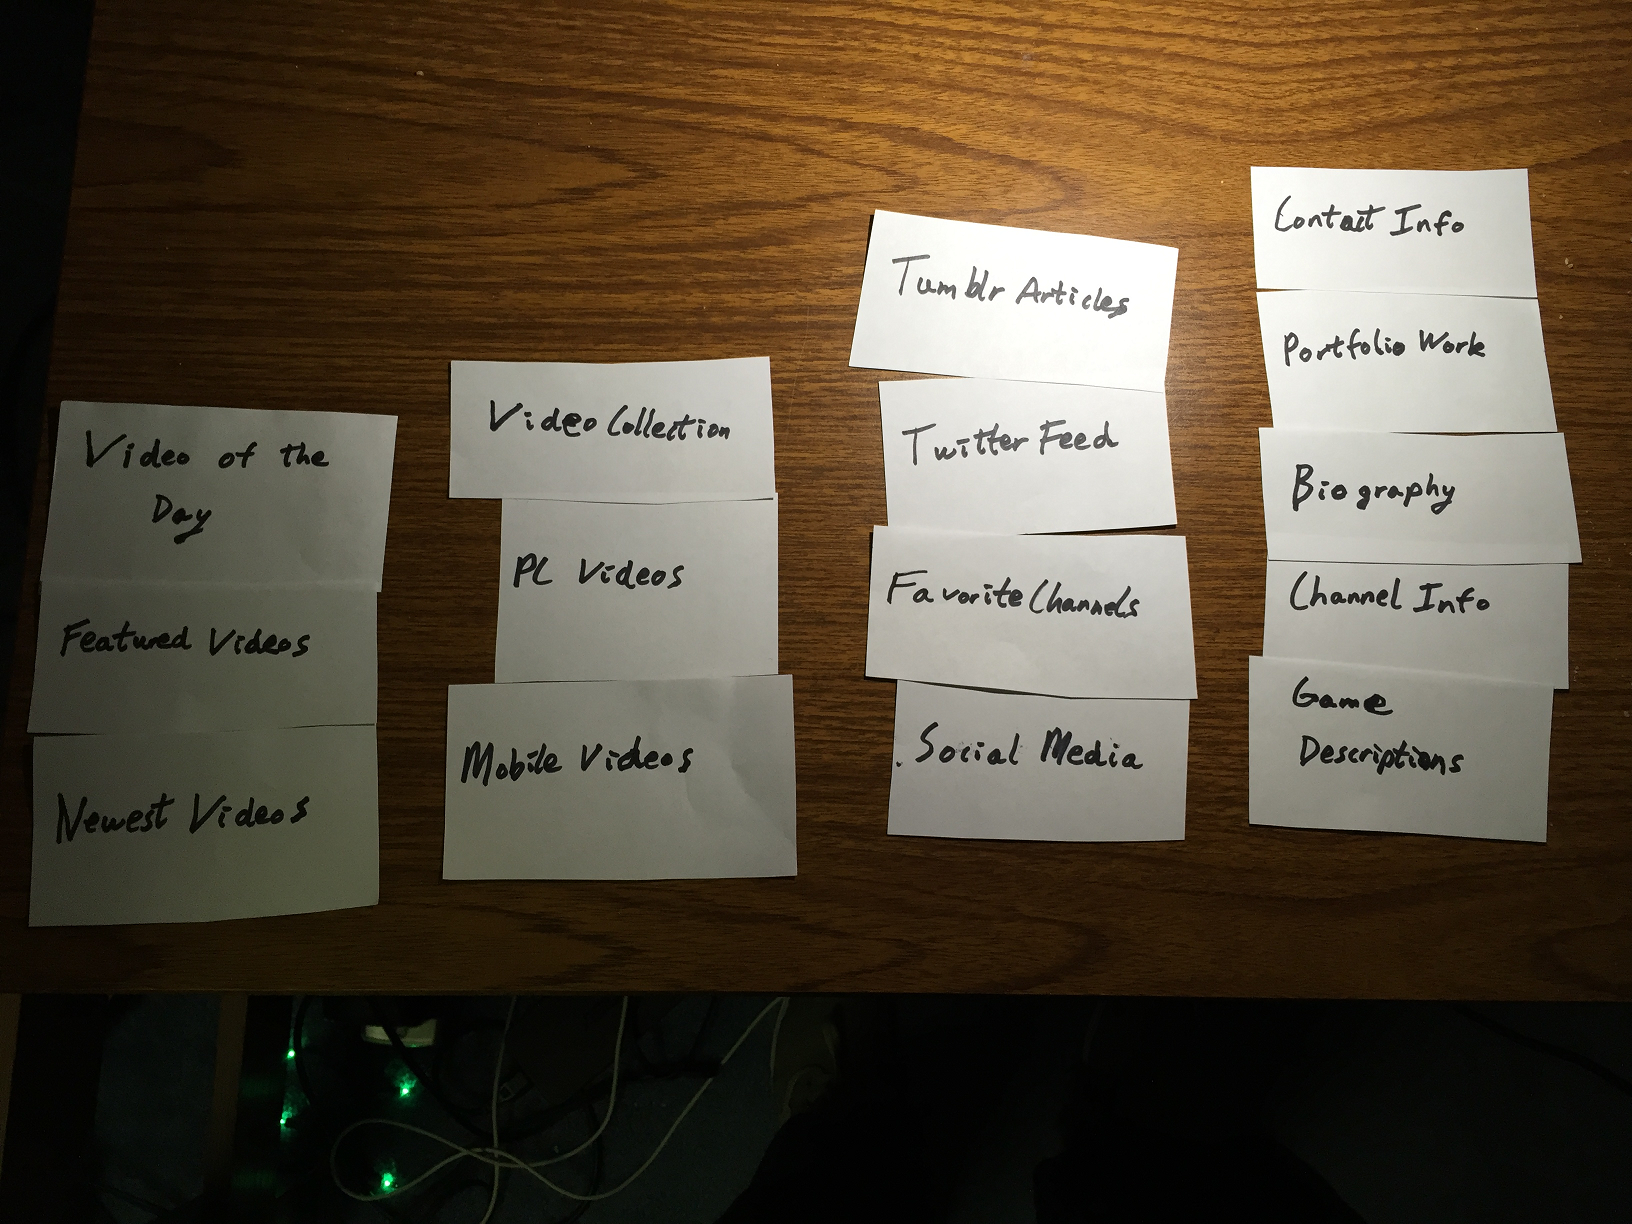 Video of the
Day
Featured Videos
Newest Videos
Video Collection
PC Videos
Mobile Videos
Tumblr Articles
Twitter Feed
Favorite Channels
Social Media
Contact Info
Portfolio Work
Biography
Channel Info
Game
Descriptions